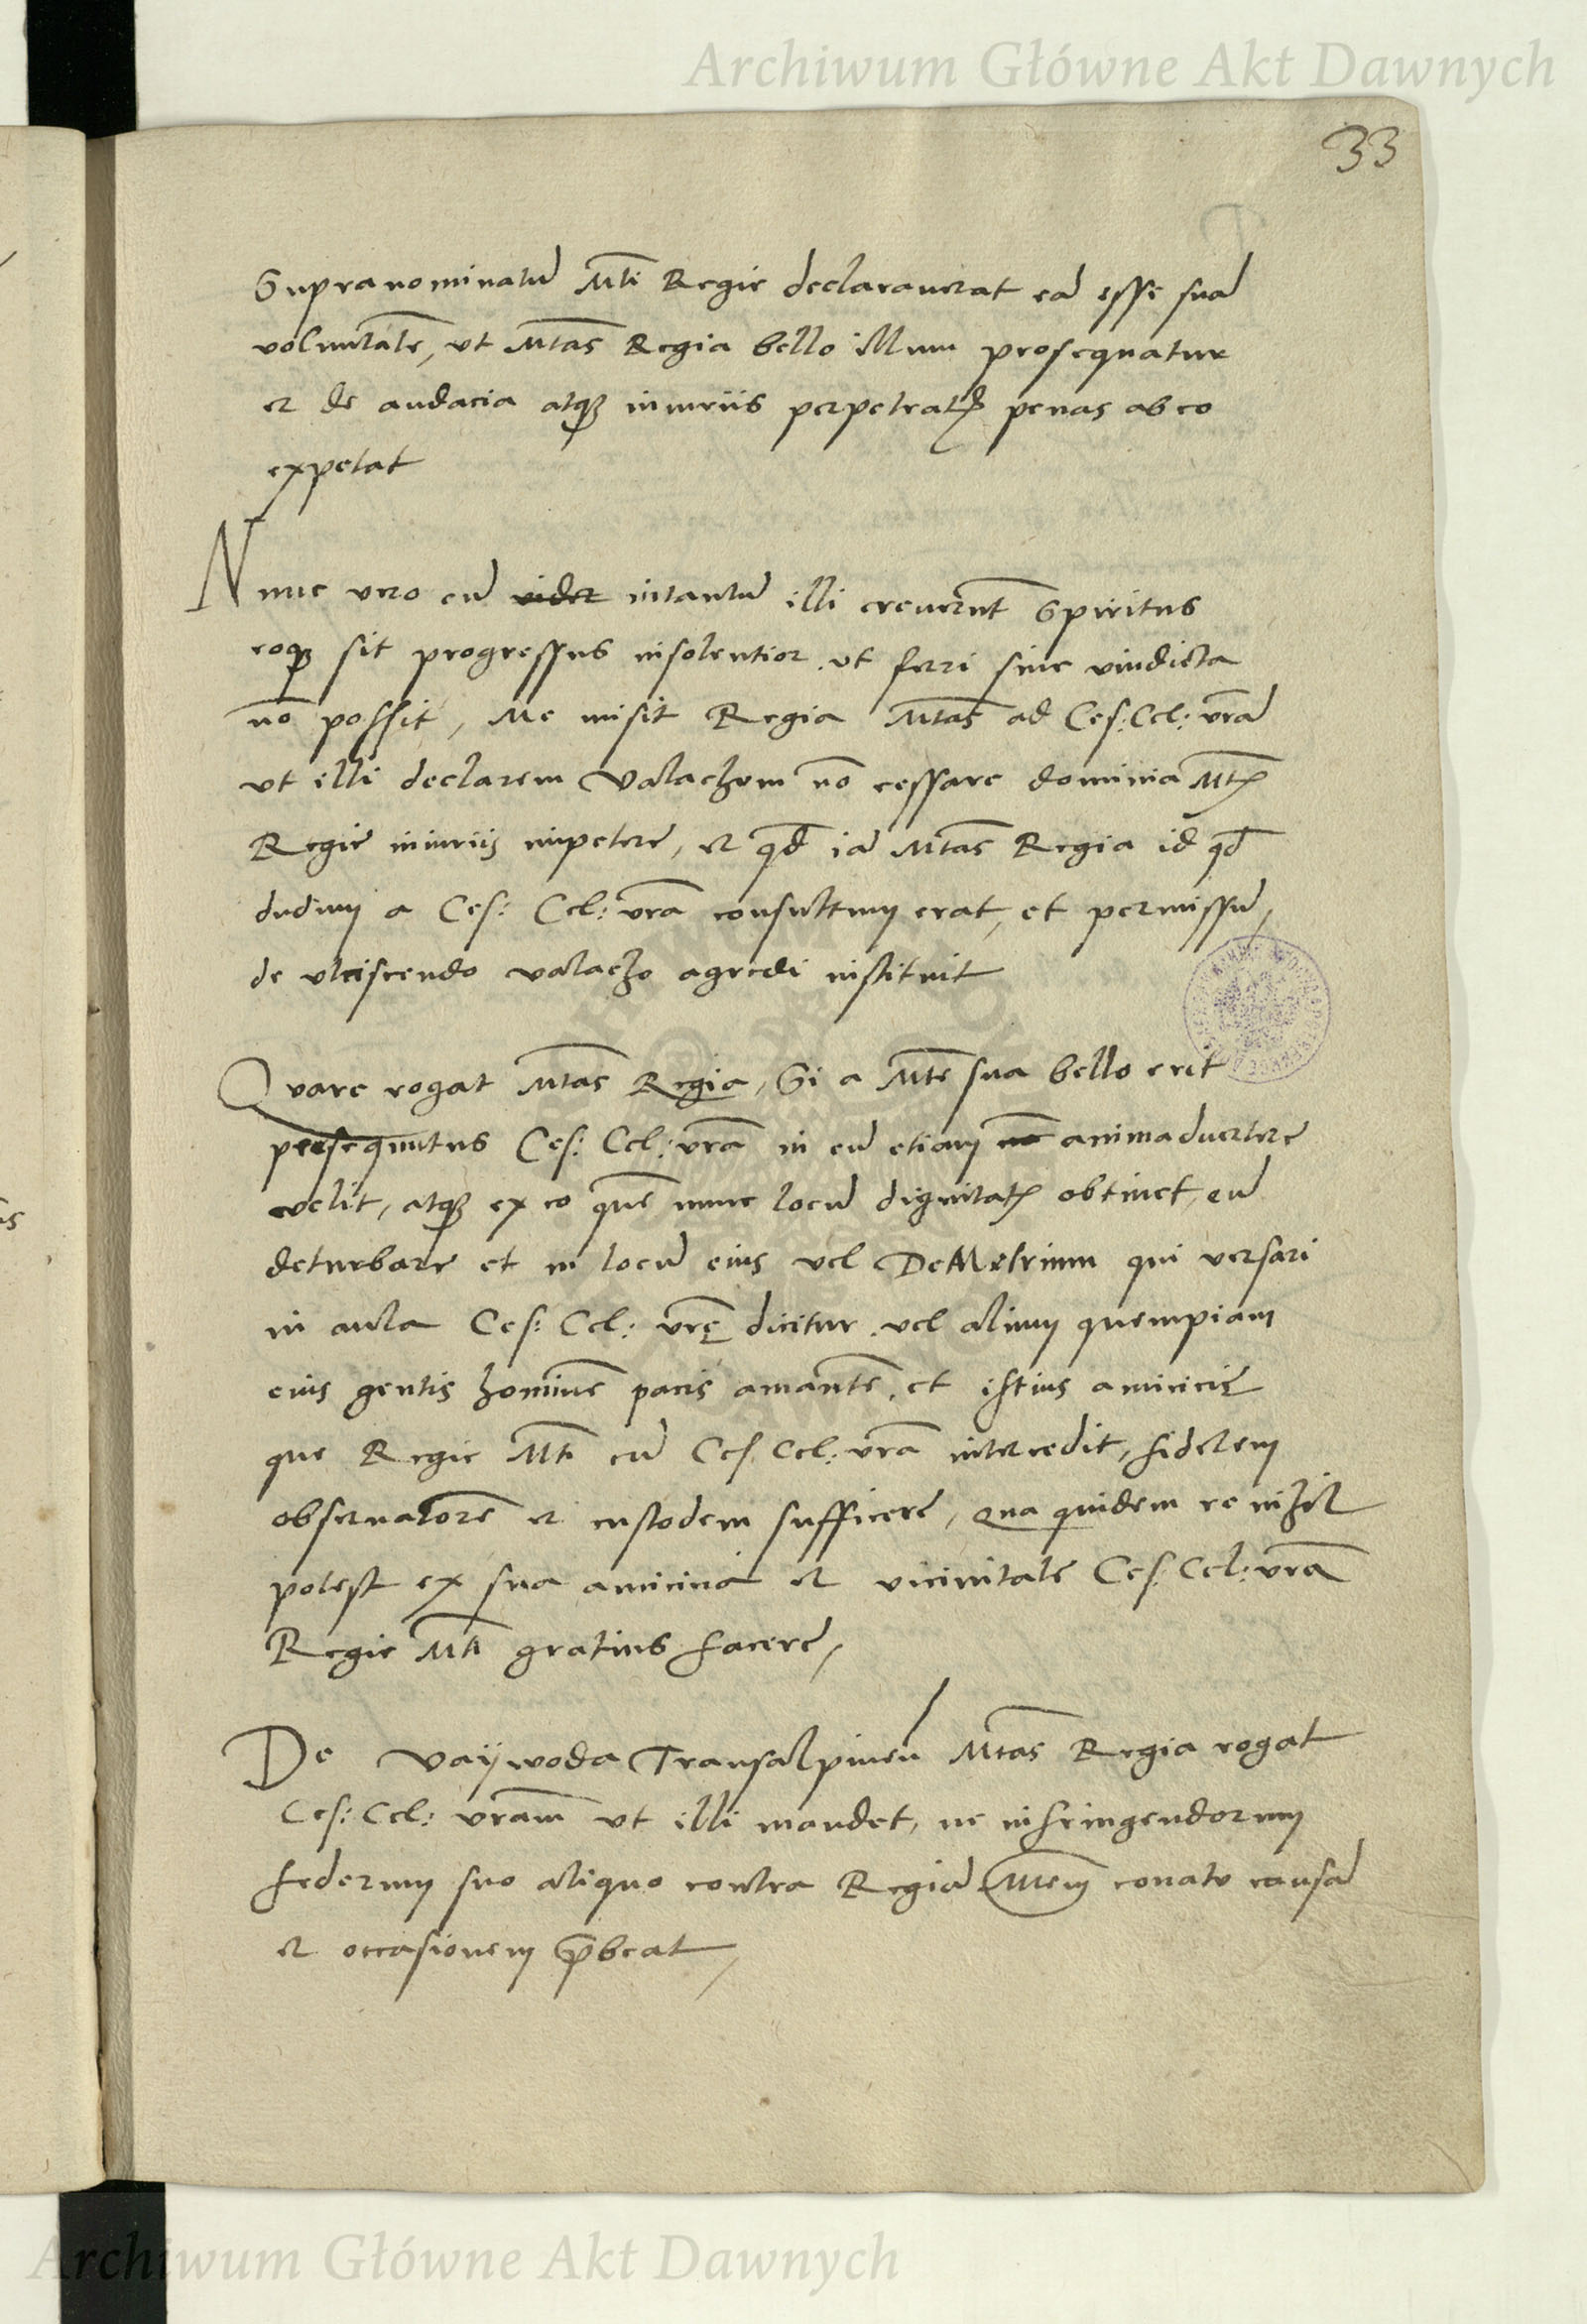 Archiwum Główne Akt Dawnych
33
Supranominatū Mti Regie declarauerat eā esse suā
voluntatē, vt Mtas Regia bello illum prosequatur
et de audacia atq3 iniuriis perpetratis penas ab eo
expetat
Nunc vero cū videt intantū illi creuerūt Spiritus
eoq3 sit progressus insolentior vt ferri sine vindicta
nō possit, Me misit Regia Mtas ad Ces: Cel: vrā
vt illi declarem Valachum nō cessare dominia Mtis
Regie iniuriis impetere, et qd iā Mtas Regia id qd
dudum a Ces: Cel: vra consultum erat, et permissū,
de vlciscendo valacho agredi instituit
Quare rogat Mtas Regia, Si a Mte sua bello erit
persequutus Ces: Cel: vra in eū etiam animaduertere
velit, atq3 ex eo quē nunc locū dignitatis obtinet, eū
deturbare et in locū eius vel DeMetrium qui versari
in aula Ces: Cel: vrę dicitur vel alium quempiam
eius gentis hominē pacis amantē, et istius amicicię
que Regie Mti cū Ces Cel: vra intercedit, fidelem
obseruatorē et custodem sufficere, Qua quidem re nihil
potest ex sua amicicia et vicinitate Ces: Cel: vra
Regie Mti gratius facere,
De Vaijwoda Transalpinen Mtas Regia rogat
Ces: Cel: vram vt illi mandet, ne infringendorum
federum suo aliquo contra Regiā Mtem conatu causā
et occasionem p̄beat
Archiwum Główne Akt Dawnych